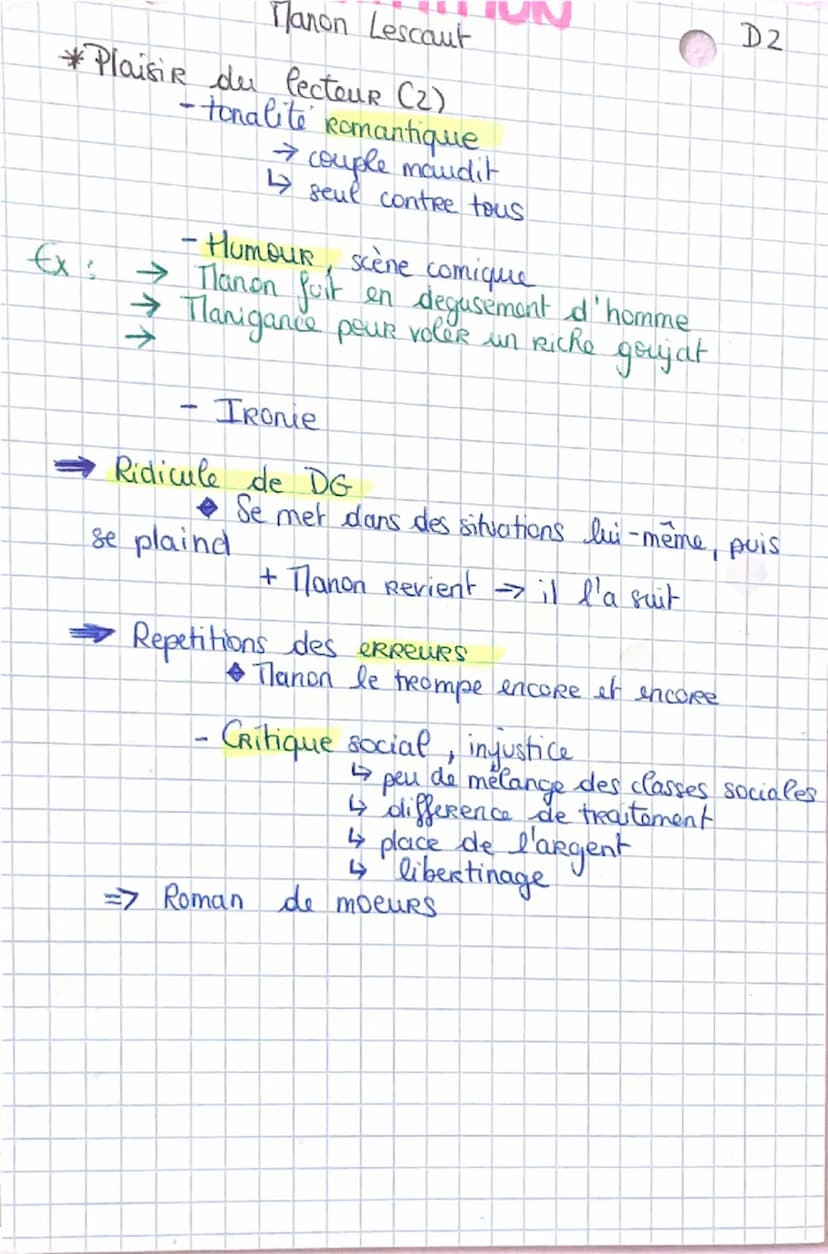 Manon Lescaut
D2
* Plaisir du lecteur (2)
- tonalité romantique
→ couple maudit
↳ seul contre tous
- Humour, scène comique
Ex : → Manon fuit en degusement d'homme
→ Manigance pour voler un riche goujat
→
- Ironie
⇒ Ridicule de DG
◆ Se met dans des situations lui-même, puis
se plaind
+ Manon revient → il l'a suit
⇒ Repetitions des erreurs
◆ Manon le trompe encore et encore
- Critique social, injustice
↳ peu de mélange des classes sociales
↳ difference de traitement
↳ place de l'argent
↳ libertinage
⇒ Roman de moeurs